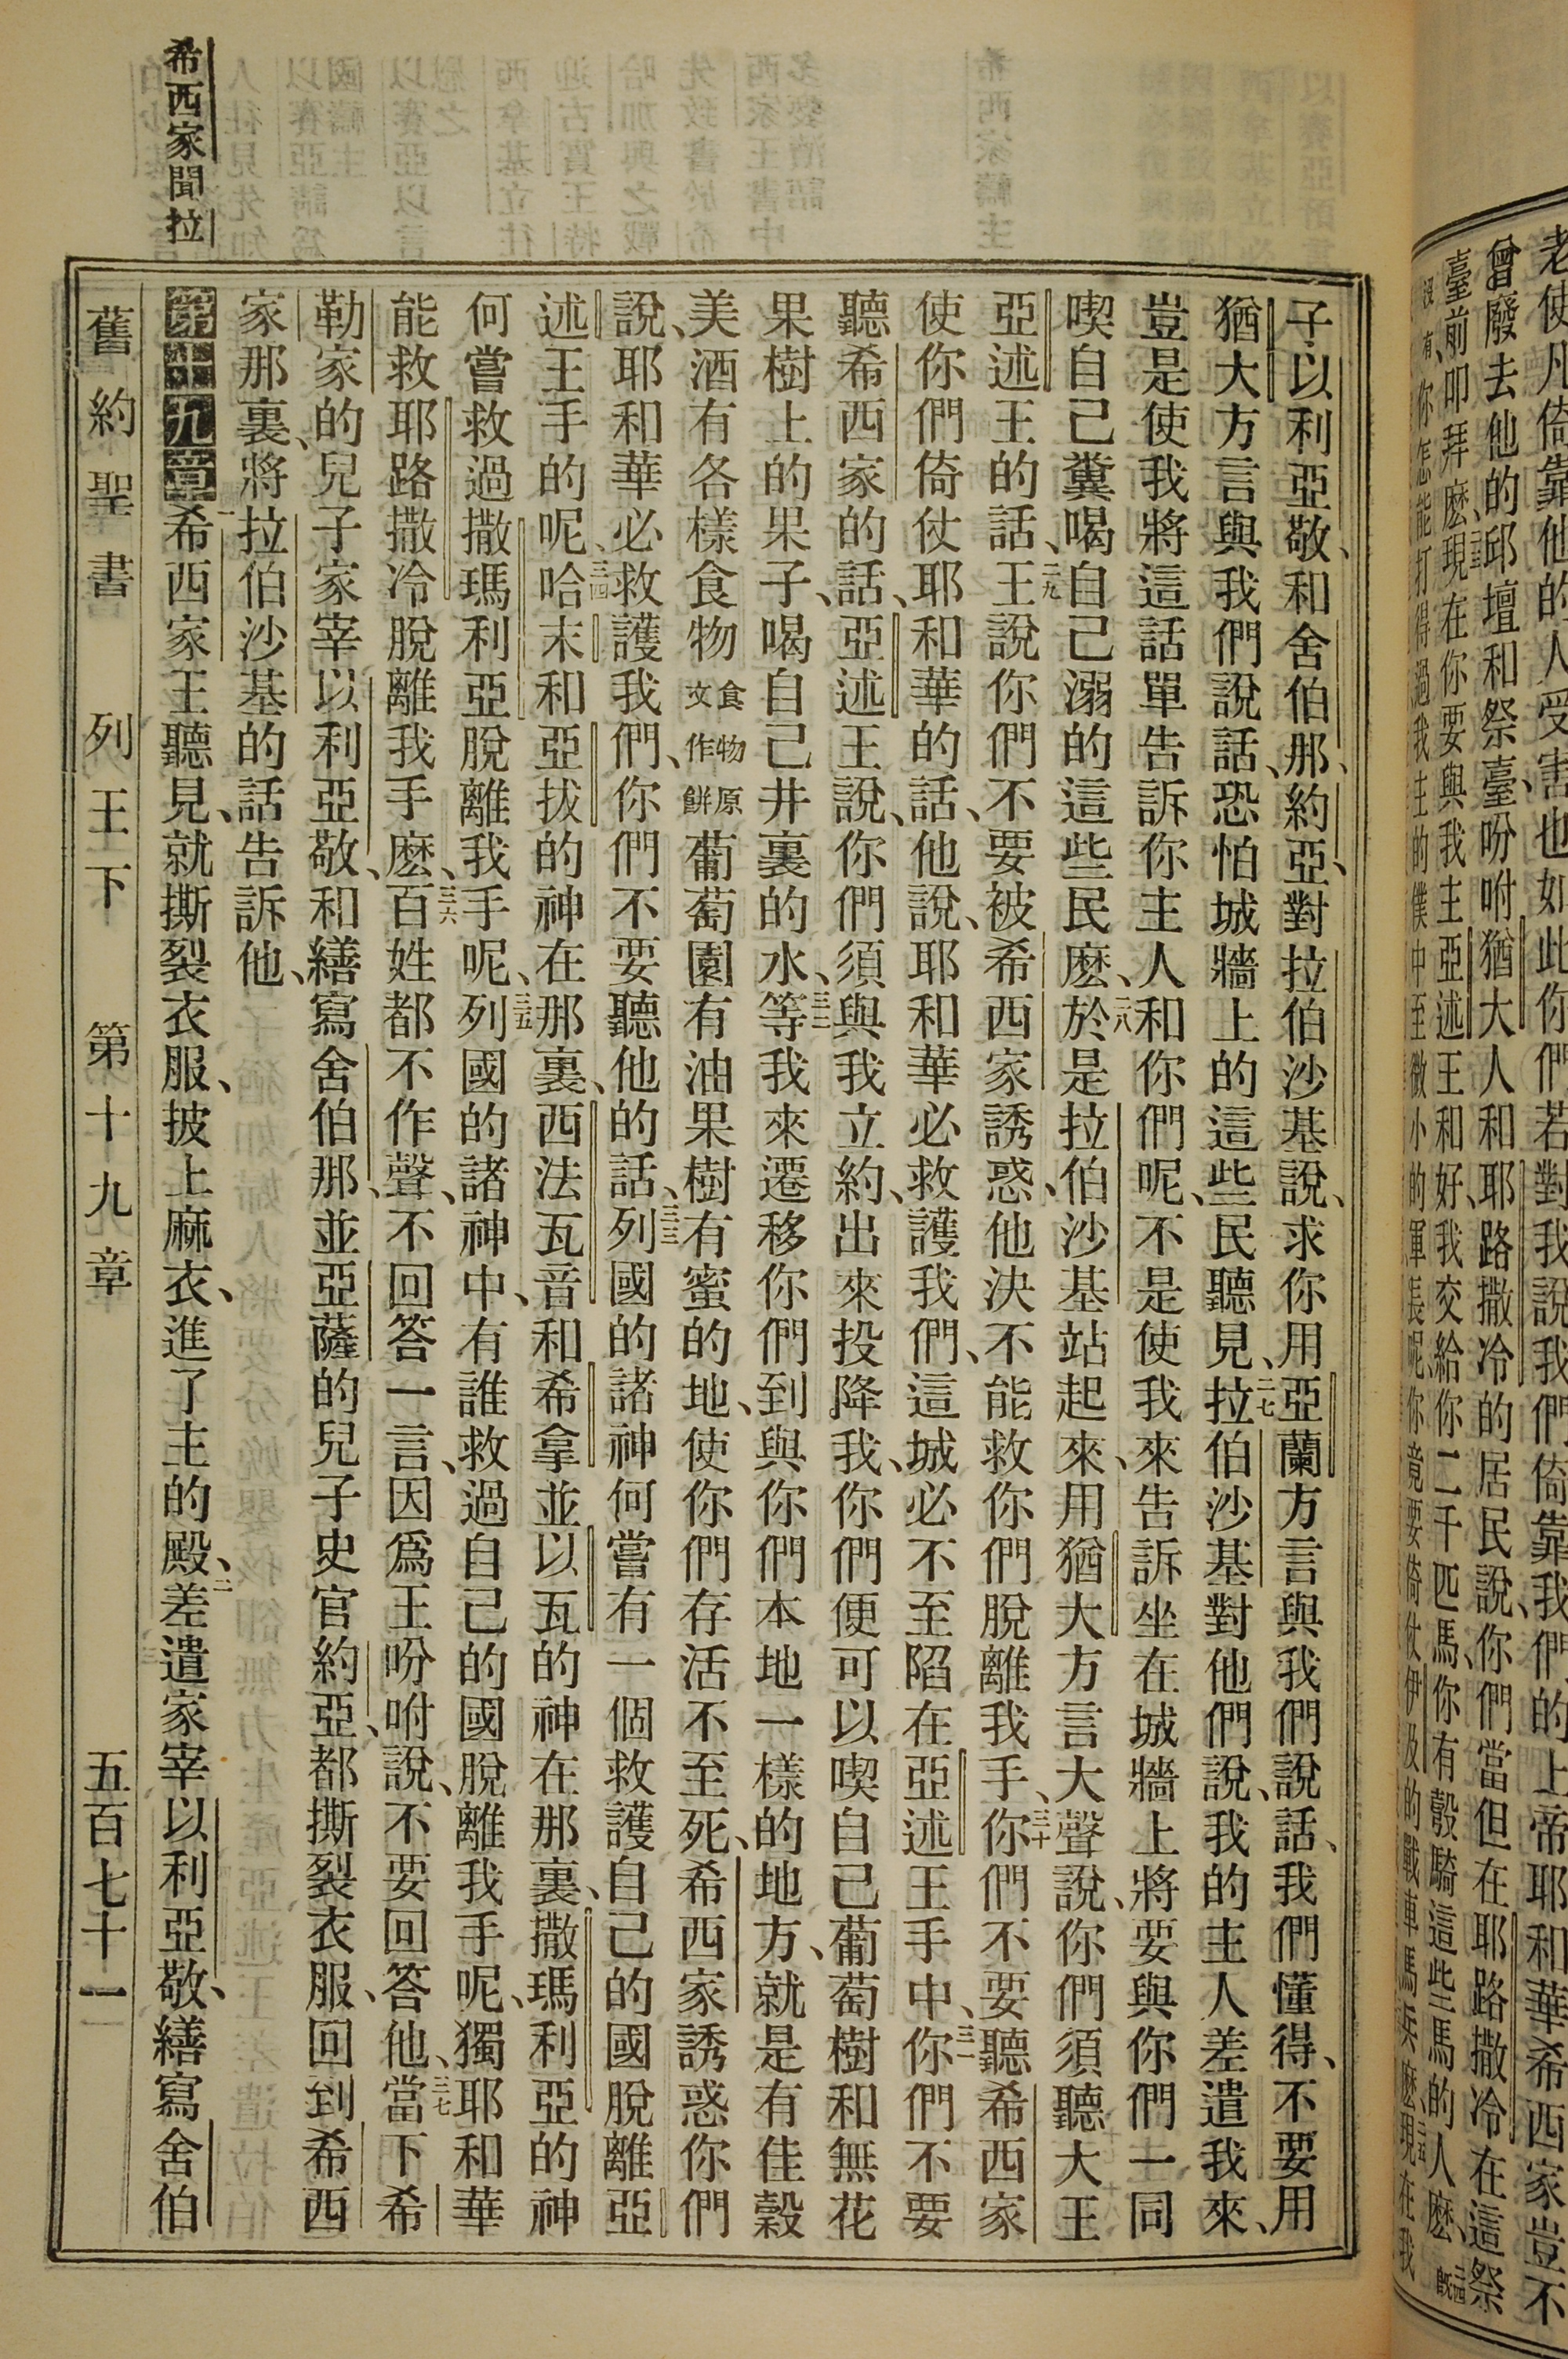 老使凡倚靠他的人受害也如此你們若對我說我們倚靠我們的上帝耶和華希西家豈不
曾廢去他的邱壇和祭臺、吩咐猶大人和耶路撒冷的居民說、你們當但在耶路撒冷在這祭
臺前叩拜麽、現在你要與我主亞述王和好、我交給你二千匹馬、你有彀騎這些馬的人麽、
你怎能打得過我主的僕中至微小的軍長呢、你竟要倚仗伊及的戰車馬兵麽、現在我
子以利亞敬、和舍伯那、約亞、對拉伯沙基說、求你用亞蘭方言與我們說話、我們懂得、不要用
猶大方言與我們說話、恐怕城牆上的這些民聽見、二七拉伯沙基對他們說、我的主人差遣我來、
豈是使我將這話單告訴你主人和你們呢、不是使我來告訴坐在城牆上將要與你們一同
喫自己糞喝自己溺的這些民麽、二八於是拉伯沙基站起來、用猶大方言大聲說、你們須聽大王
亞述王的話、二九王說你們不要被希西家誘惑、他決不能救你們脫離我手、三十你們不要聽希西家
使你們倚仗耶和華的話、他說、耶和華必救護我們、這城必不至陷在亞述王手中、三一你們不要
聽希西家的話、亞述王說、你們須與我立約、出來投降我、你們便可以喫自己葡萄樹和無花
果樹上的果子、喝自己井裏的水、三二等我來遷移你們、到與你們本地一樣的地方、就是有佳穀
美酒有各樣食物食物原文作餅葡萄園有油果樹有蜜的地、使你們存活不至死、希西家誘惑你們
說、耶和華必救護我們、你們不要聽他的話、三三列國的諸神何嘗有一個救護自己的國脫離亞
述王手的呢、三四哈末和亞拔的神在那裏、西法瓦音和希拿並以瓦的神在那裏、撒瑪利亞的神
何嘗救過撒瑪利亞脫離我手呢、三五列國的諸神中、有誰救過自己的國脫離我手呢、獨耶和華
能救耶路撒冷脫離我手麽、三六百姓都不作聲、不回答一言、因爲王吩咐說、不要回答他、三七當下希
勒家的兒子家宰以利亞敬、和繕寫舍伯那、並亞薩的兒子史官約亞、都撕裂衣服、回到希西
家那裏、將拉伯沙基的話告訴他、
第十九章一希西家王聽見、就撕裂衣服、披上麻衣、進了主的殿、二差遣家宰以利亞敬、繕寫舍伯
希西家聞拉
舊約聖書 列王下 第十九章 五百七十一